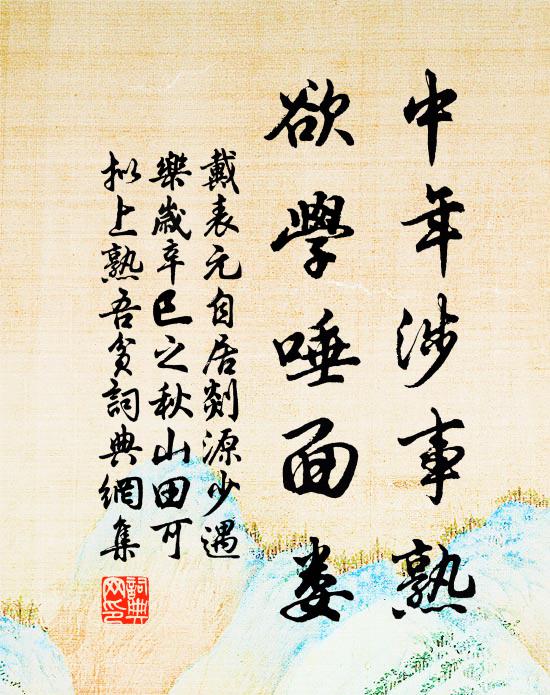 中年涉事熟
欲學唾面娄
戴表元自居剡源少遇
樂歲辛巳之秋山田可
拟上熟吾貧詞典網集
詞典
网印